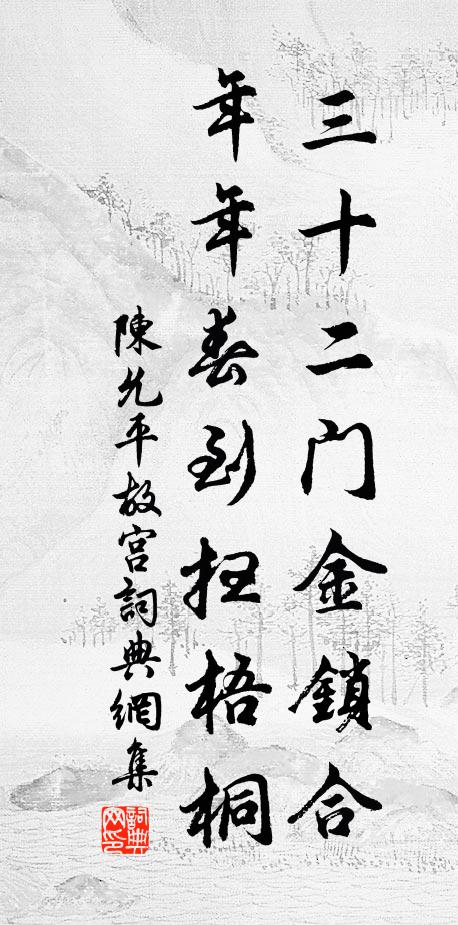 三十二门金鎖合
年年春到枉梧桐
陳允平故宫詞典網集
詞典网印